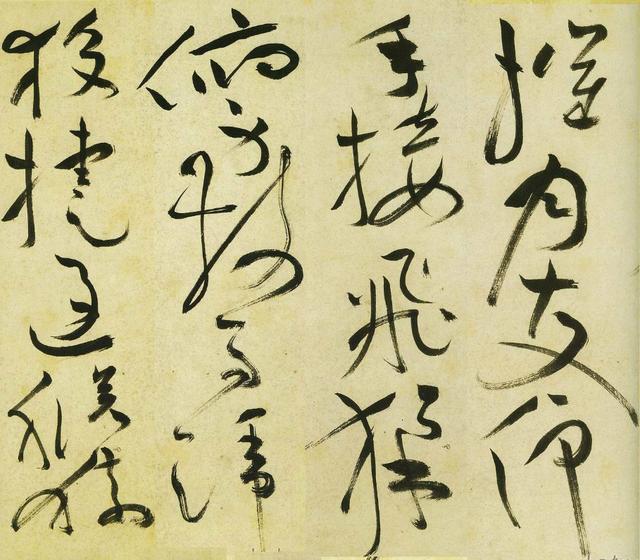 摧月支仰
手接飛猱
俯身散馬蹄
狡捷過猴猿